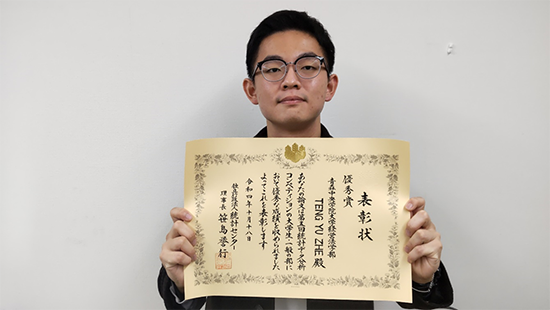 表彰状
優秀賞
青森中央学院大学経営法学部
TENG YU ZHE 殿
あなたの論文は第五回統計データ分析
コンペティションの大学生・一般の部に
おいて優秀な成績を収められました
よってこれを表彰します
令和四年十月十八日
独立行政法人統計センター
理事長 笹島誉行